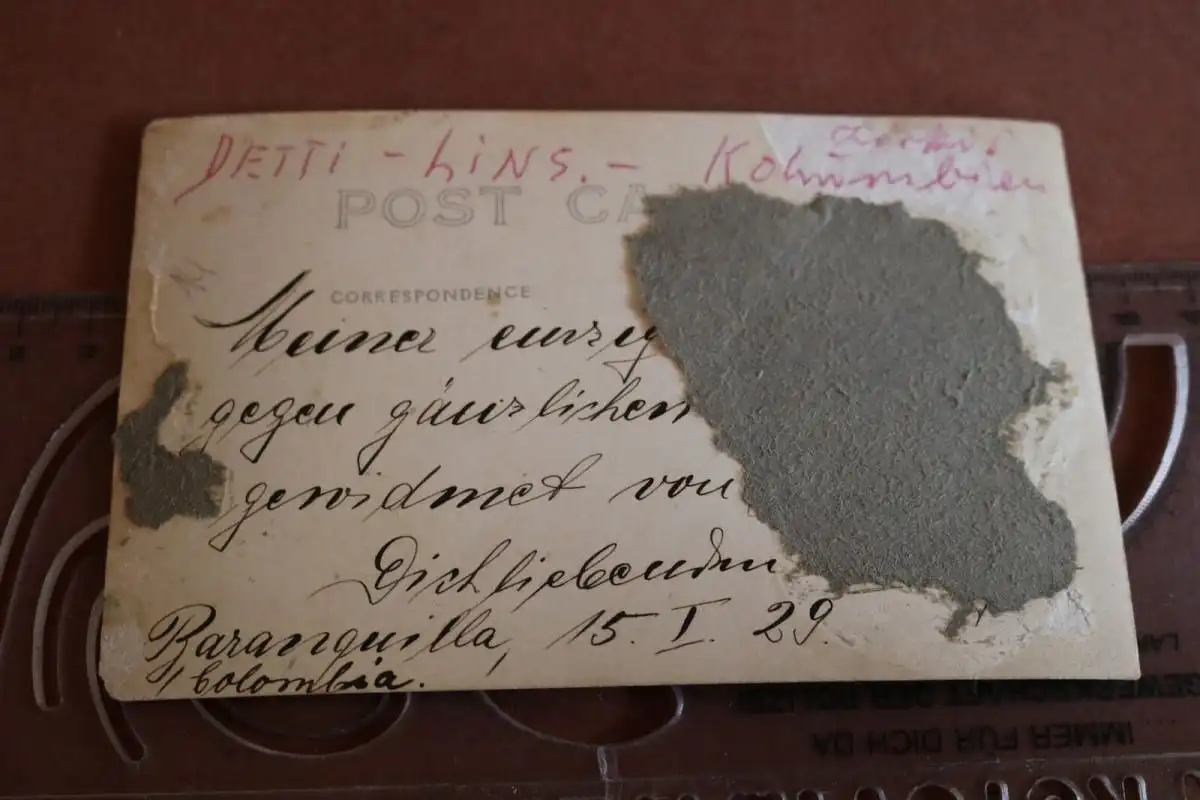 DETTI - LINS. - Kolumbien
POST CA
CORRESPONDENCE
Meiner einzig
gegen gänzlichen
gewidmet von
Dich liebenden
Baranquilla, 15. I. 29.
Colombia.
IMMER FÜR DICH DA